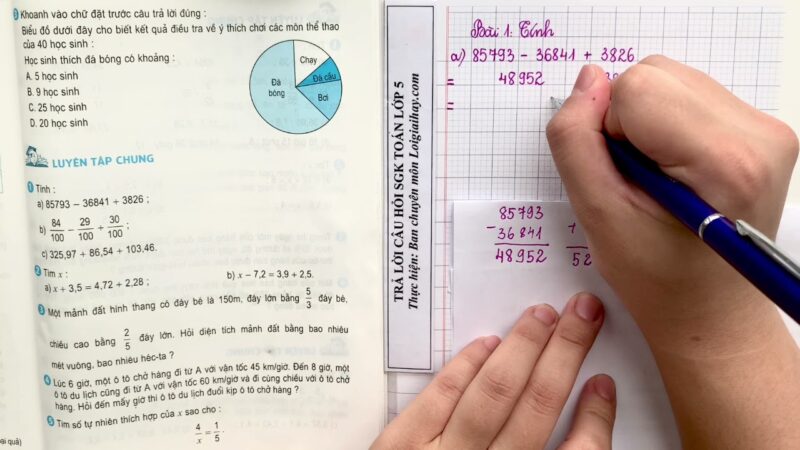 Khoanh vào chữ đặt trước câu trả lời đúng :
Biểu đồ dưới đây cho biết kết quả điều tra về ý thích chơi các môn thể thao
của 40 học sinh :
Học sinh thích đá bóng có khoảng :
A. 5 học sinh
B. 9 học sinh
C. 25 học sinh
D. 20 học sinh
Chạy
Đá cầu
Đá
bóng
Bơi
LUYỆN TẬP CHUNG
1 Tính :
a) 85793 – 36841 + 3826 ;
b) 84/100 – 29/100 + 30/100 ;
c) 325,97 + 86,54 + 103,46.
2 Tìm x :
a) x + 3,5 = 4,72 + 2,28 ; b) x – 7,2 = 3,9 + 2,5.
3 Một mảnh đất hình thang có đáy bé là 150m, đáy lớn bằng 5/3 đáy bé,
chiều cao bằng 2/5 đáy lớn. Hỏi diện tích mảnh đất bằng bao nhiêu
mét vuông, bao nhiêu héc-ta ?
4 Lúc 6 giờ, một ô tô chở hàng đi từ A với vận tốc 45 km/giờ. Đến 8 giờ, một
ô tô du lịch cũng đi từ A với vận tốc 60 km/giờ và đi cùng chiều với ô tô chở
hàng. Hỏi đến mấy giờ thì ô tô du lịch đuổi kịp ô tô chở hàng ?
5 Tìm số tự nhiên thích hợp của x sao cho :
4/x = 1/5 .
TRẢ LỜI CÂU HỎI SGK TOÁN LỚP 5
Thực hiện: Ban chuyên môn Loigiaihay.com
Bài 1: Tính
a) 85793 - 36841 + 3826
= 48952
=
85793
- 36841
48952
+
52